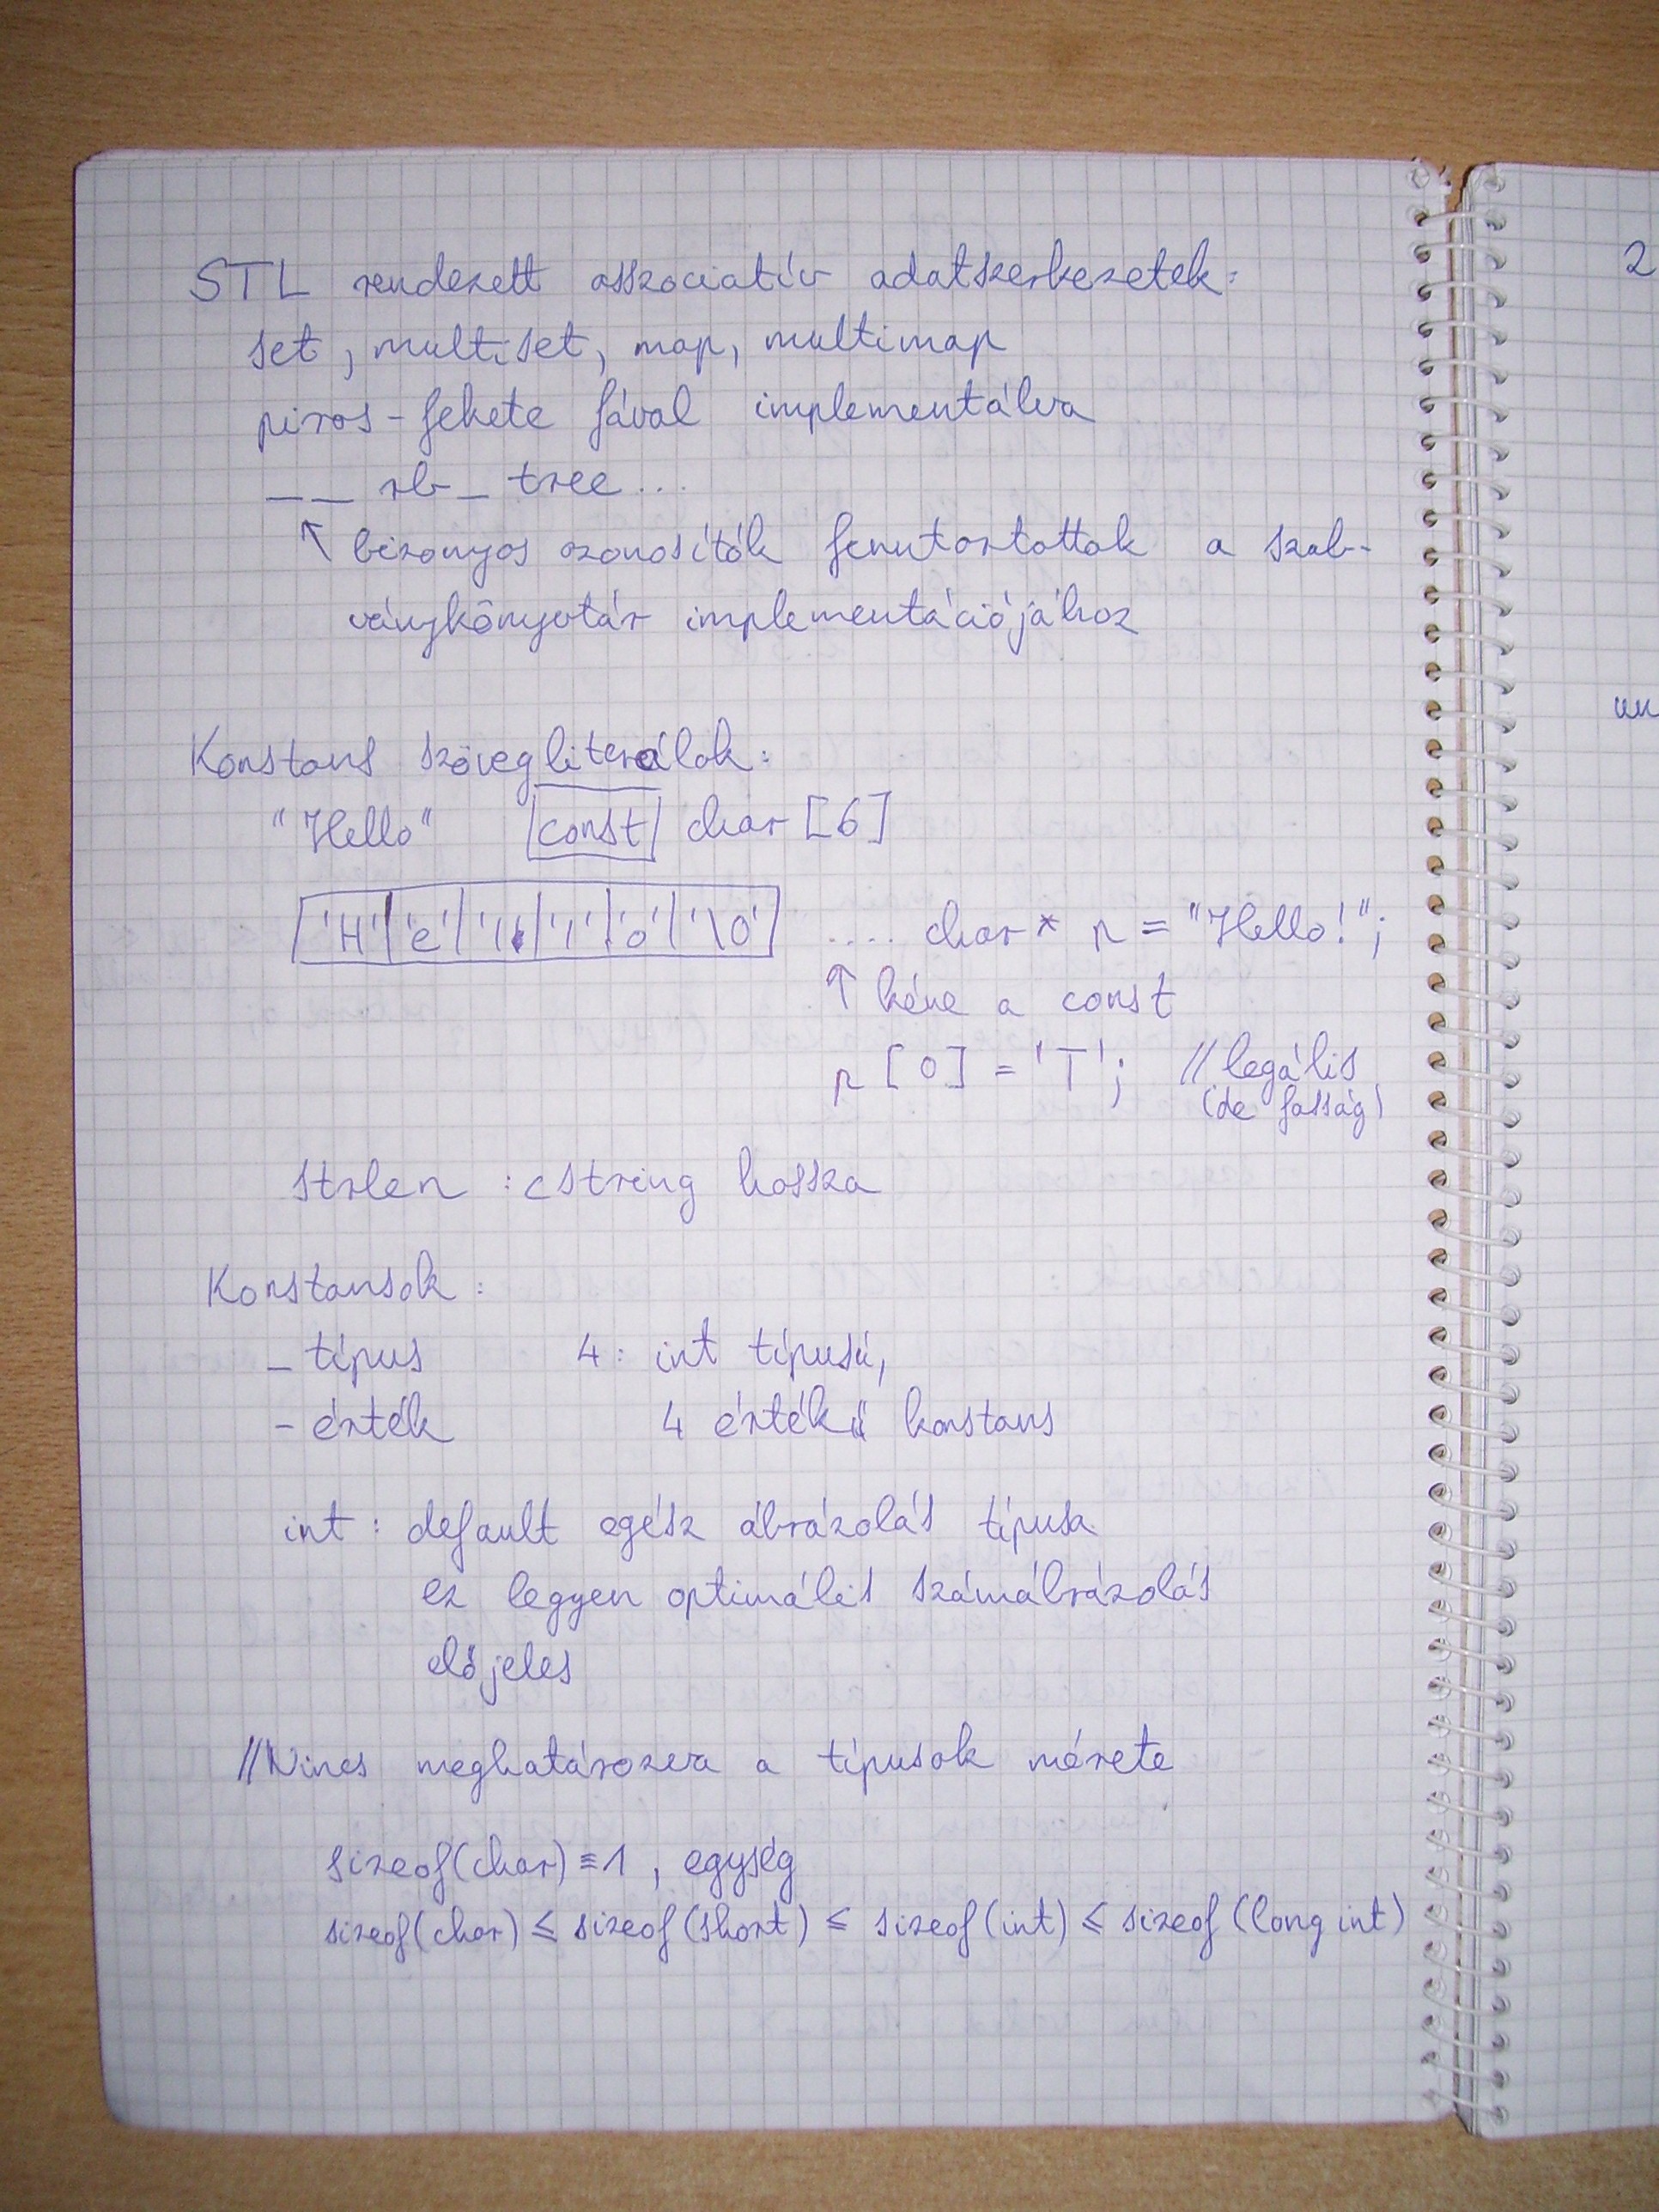 STL rendezett asszociatív adatszerkezetek:
set, multiset, map, multimap
piros-fekete fával implementálva
__ rb_tree...
↑ bizonyos azonosítók fenntartottak a szab-
ványkönyvtár implementációjához
Konstans szövegliterálok:
"Hello" const char [6]
'H' 'e' 'l' 'l' 'o' '\0' .... char* p = "Hello!";
↑ kéne a const
p[0] = 'T'; // legális
(de fasság)
strlen : cstring hossza
Konstansok :
- típus 4: int típusú,
- érték 4 értékű konstans
int : default egész ábrázolás típusa
ez legyen optimális számábrázolás
előjeles
//Nincs meghatározva a típusok mérete
sizeof(char) ≡ 1 , egység
sizeof(char) ≤ sizeof(short) ≤ sizeof(int) ≤ sizeof(long int)
2